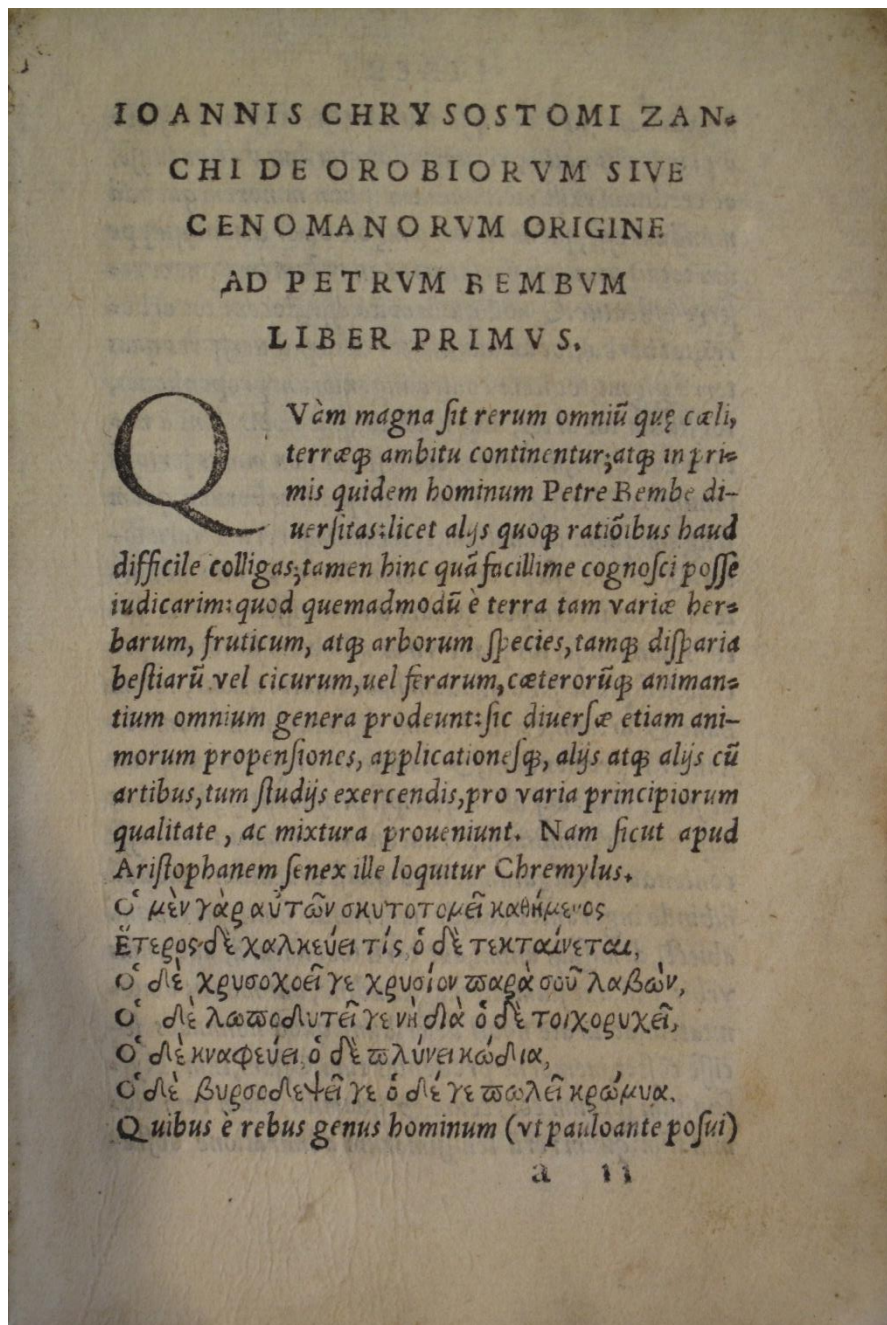 IOANNIS CHRYSOSTOMI ZAN-
CHI DE OROBIORVM SIVE
CENOMANORVM ORIGINE
AD PETRVM BEMBVM
LIBER PRIMVS.
QVàm magna ſit rerum omniũ quę cæli,
terræqꝫ ambitu continentur;atqꝫ in pri-
mis quidem hominum Petre Bembe di-
uerſitas:licet alijs quoqꝫ ratiõibus haud
difficile colligas;tamen hinc quã facillime cognoſci poſſe
iudicarim:quod quemadmodũ è terra tam variæ her-
barum, fruticum, atqꝫ arborum ſpecies,tamqꝫ diſparia
beſtiarũ vel cicurum,uel ferarum,cæterorũqꝫ animan-
tium omnium genera prodeunt:ſic diuerſæ etiam ani-
morum propenſiones, applicationeſqꝫ, alijs atqꝫ alijs cũ
artibus,tum ſtudijs exercendis,pro varia principiorum
qualitate, ac mixtura proueniunt. Nam ſicut apud
Ariſtophanem ſenex ille loquitur Chremylus.
Ὁ μὲν γὰρ αὐτῶν σκυτοτομεῖ καθήμενος
Ἕτερος δὲ χαλκεύει τίς, ὁ δὲ τεκταίνεται,
Ὁ δὲ χρυσοχοεῖ γε χρυσίον παρὰ σοῦ λαβὼν,
Ὁ δὲ λωποδυτεῖ γε νὴ δία ὁ δὲ τοιχορυχεῖ,
Ὁ δὲ κναφεύει, ὁ δὲ πλύνει κώδια,
Ὁ δὲ βυρσοδεψεῖ γε ὁ δέ γε πωλεῖ κρώμυα.
Quibus è rebus genus hominum (vt pauloante poſui)
a ii